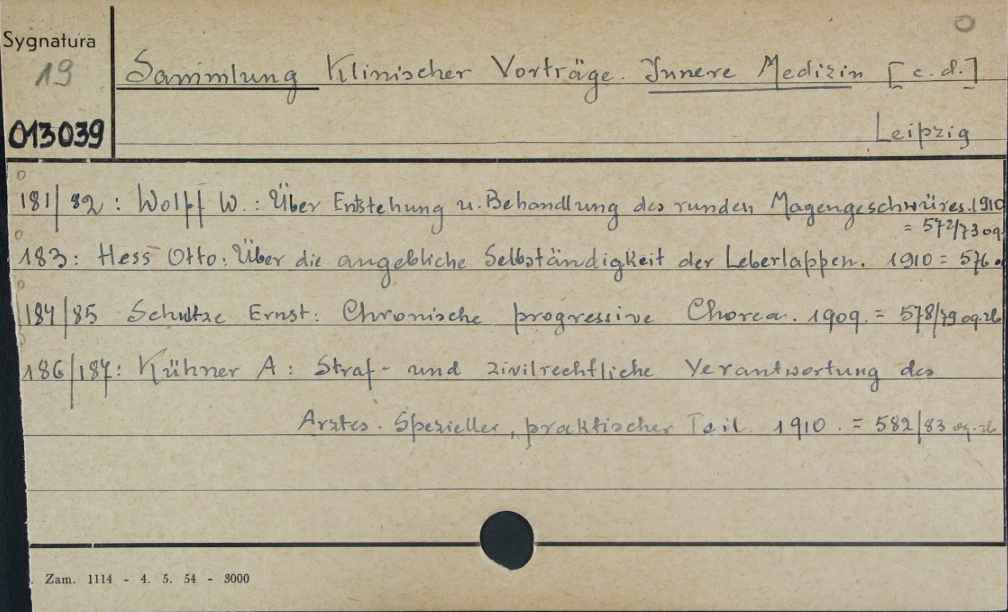 Sygnatura
19
013039
Sammlung Klinischer Vorträge. Innere Medizin [c.d.]
Leipzig
181/82 : Wolff W. : Über Entstehung u. Behandlung des runden Magengeschwüres. 1910
= 572/73 og.
183: Hess Otto: Über die angebliche Selbständigkeit der Leberlappen. 1910 = 576
184/85 Schultze Ernst: Chronische progressive Chorea. 1909. = 578/79 og. zb
186/187: Kühner A : Straf- und zivilrechtliche Verantwortung des
Arztes. Spezieller, praktischer Teil. 1910. = 582/83 og. zb
Zam. 1114 - 4. 5. 54 - 3000